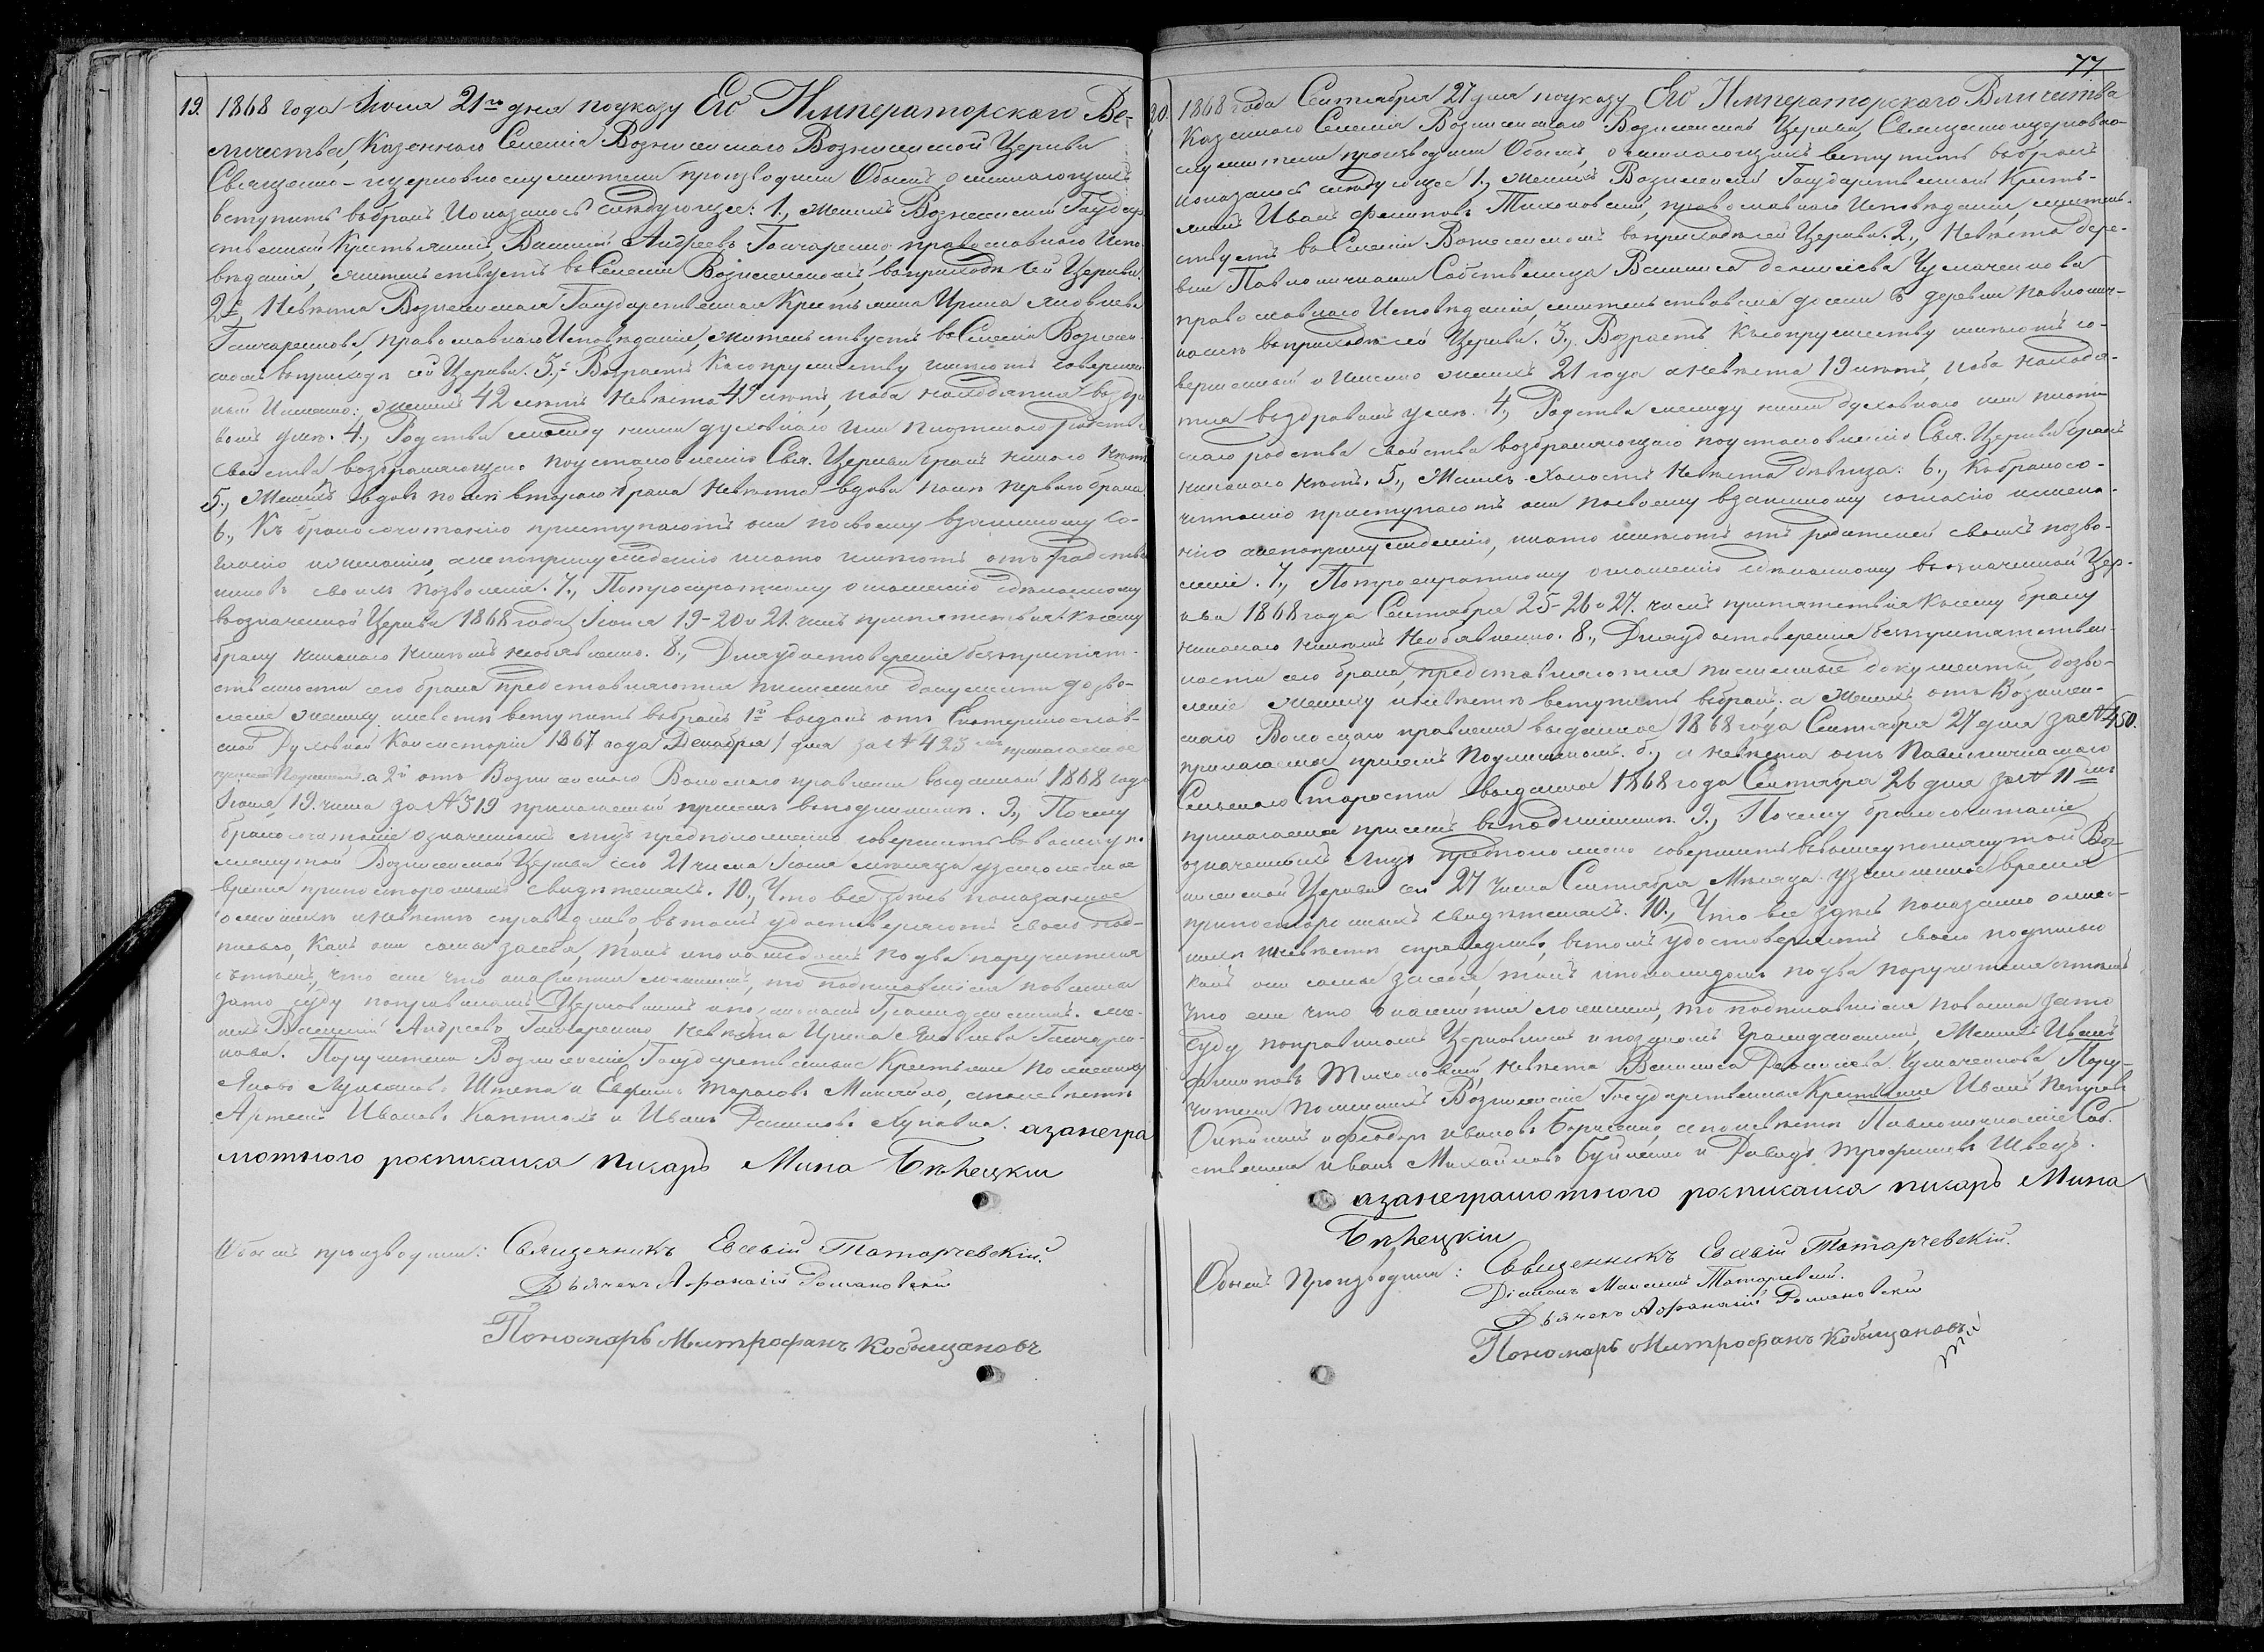 77
19. 1868 года Іюня 21го дня по указу Его Императорскаго Ве-
личества, Казеннаго Селенія Вознесенскаго Вознесенской Церкви
Священно-и церковнослужители производили Обыскъ о желающихъ
вступить въ бракъ и оказалось слѣдующее: 1., Женихъ Вознесенскій Государ
ственный Крестьянинъ Василій Андреевъ Гончаренко, православнаго Испо-
вѣданія, жительствуетъ въ Селеніи Вознесенскомъ, въ приходѣ сей Церкви.
2е, Невѣста Вознесенская Государственная Крестьянка Ирина Яковлева
Гончаренкова, православнаго Исповѣданія, жительствуетъ въ Селеніи Вознесен-
скомъ въ приходѣ сей Церкви. 3., Возрастъ къ супружеству имѣютъ совершен
ный и именно: женихъ 42 лѣтъ невѣста 49 лѣтъ, и оба находятся въ здра
вомъ умѣ. 4., Родства между ними духовнаго или плотскаго родства
свойства возбраняющаго по установленію Свя. Церкви бракъ никакого нѣтъ
5., Женихъ вдовъ послѣ втораго брака невѣста вдова послѣ перваго брака
6., Къ бракосочетанію приступаютъ они по своему взаимному со-
гласію и желанію, а не по принужденію и на то имѣютъ отъ родствен
никовъ своихъ позволеніе. 7., По троекратному оглашенію сдѣланному
въ означенной Церкви 1868 года Іюня 19-20 и 21. числъ препятствія къ сему
браку никакого никѣмъ не объявлено. 8., Для удостовѣренія безпрепят-
ственности сего брака представляются письменные документы дозво-
леніе жениху и невѣстѣ вступить въ бракъ 1й выданъ отъ Екатеринослав-
ской Духовной Консисторіи 1867 года Декабря 1 дня за № 423 прилагаемое
а 2й отъ Вознесенскаго Волостнаго правленія выданный 1868 года
Іюня 19. числа за № 319 прилагаемый при семъ въ подлинникѣ. 9., Почему
бракосочетаніе означенныхъ лицъ предположено совершить въ вышеупо
мянутой Вознесенской Церкви сего 21 числа Іюня мѣсяца узаконенное
время при постороннихъ свидѣтеляхъ. 10., Что все здѣсь показанное
о женихѣ и невѣстѣ справедливо, въ томъ удостовѣряютъ своею под-
писью, какъ они сами за себя, такъ и по каждомъ по два поручителя
съ тѣмъ, что если что окажется ложнымъ, то подписавшіеся повинны
за то суду по правиламъ Церковнымъ и по законамъ Гражданскимъ. Же-
нихъ Василій Андреевъ Гончаренко, невѣста Ирина Яковлева Гончарен-
кова. Поручители Вознесенскіе Государственные Крестьяне по женихѣ
Яковъ Лукьяновъ Штепа и Евфимъ Тарасовъ Михайло, а по невѣстѣ
Артемій Ивановъ Каптюхъ и Иванъ Даниловъ Луковка. а за негра
мотного росписался писаръ Мина Бѣлецкій
Обыскъ производили: Священникъ Евсевій Татарчевскій.
Дьячекъ Афанасій Романовскій
Пономарь Митрофанъ Кобыщановъ
20. 1868 года Сентября 27 дня по указу Его Императорскаго Величества
Казеннаго Селенія Вознесенскаго Вознесенской Церкви, Священно и церковно-
служители производили Обыскъ, о желающихъ вступить въ бракъ
и оказалось слѣдующее 1., Женихъ Вознесенскій Государственный Кресть-
янинъ Иванъ Филиповъ Тихоновскій, православнаго Исповѣданія, житель-
ствуетъ въ Селеніи Вознесенскомъ въ приходѣ сей Церкви. 2., Невѣста дере-
вни Павлопичкасъ Собственница Василиса Денисіева Чумаченкова
православнаго Исповѣданія, жительствовала доселѣ въ деревни Павлопич-
касѣ въ приходѣ сей Церкви. 3., Возрастъ къ супружеству имѣютъ со-
вершенный и именно женихъ 21 года а невѣста 19 лѣтъ, и оба находя-
тся въ здравомъ умѣ. 4., Родства между ними духовнаго или плот
скаго родства свойства возбраняющаго по установленію Свя. Церкви бракъ
никакого нѣтъ. 5., Женихъ Холостъ Невѣста дѣвица. 6., Къ бракосо-
читанію приступаютъ они по своему взаимному согласію и жела-
нію а не по принужденію, и на то имѣютъ отъ родителей своихъ позво-
леніе. 7., По троекратному оглашенію сдѣланному въ означенной Цер-
кви 1868 года Сентября 25-26 и 27. числъ препятствія къ сему браку
никакого никѣмъ не объявлено. 8., Для удостовѣренія безпрепятствен-
ности сего брака, представляются письменные документы, дозво-
леніе жениху и невѣстѣ вступить въ бракъ. а Женихъ отъ Вознесен-
скаго Волостнаго правленія выданное 1868 года Сентября 27 дня за № 450.
прилагаемое при семъ подлинникомъ. б., а невѣста отъ Павлопичкаскаго
Сельскаго Старосты выданное 1868 года Сентября 26 дня за № 11
прилагаемое при семъ въ подлинникѣ. 9., Почему бракосочитаніе
означенныхъ лицъ предположено совершить въ вышеупомянутой Воз-
несенской Церкви сего 27 числа Сентября Мѣсяца узаконенное время
при постороннихъ свидѣтеляхъ. 10., Что все здѣсь показано о же-
нихѣ и невѣстѣ справедливо, въ томъ удостовѣряютъ своею подписью
какъ они сами за себя, такъ и по каждомъ по два поручителя съ тѣмъ
что если что окажется ложнымъ, то подписавшіеся повинны за то
суду по правиламъ Церковнымъ и по законамъ Гражданскимъ, Женихъ Иванъ
Филиповъ Тихоновскій, невѣста Василиса Денисіева Чумаченкова Пору-
чители по женихѣ Вознесенскіе Государственные Крестьяне Иванъ Петровъ
и Феодоръ Ивановъ Борисенко, а по невѣстѣ Павлопичкаскіе Соб-
ственники Иванъ Михайловъ Буйленко и Давидъ Трофимовъ Швецъ.
а за неграмотного росписался писаръ Мина
Бѣлецкій
Обыскъ Производили: Священникъ Евсевій Татарчевскій.
Діаконъ Татарчевскій.
Дьячекъ Афанасій Романовскій
Пономарь Митрофанъ Кобыщановъ